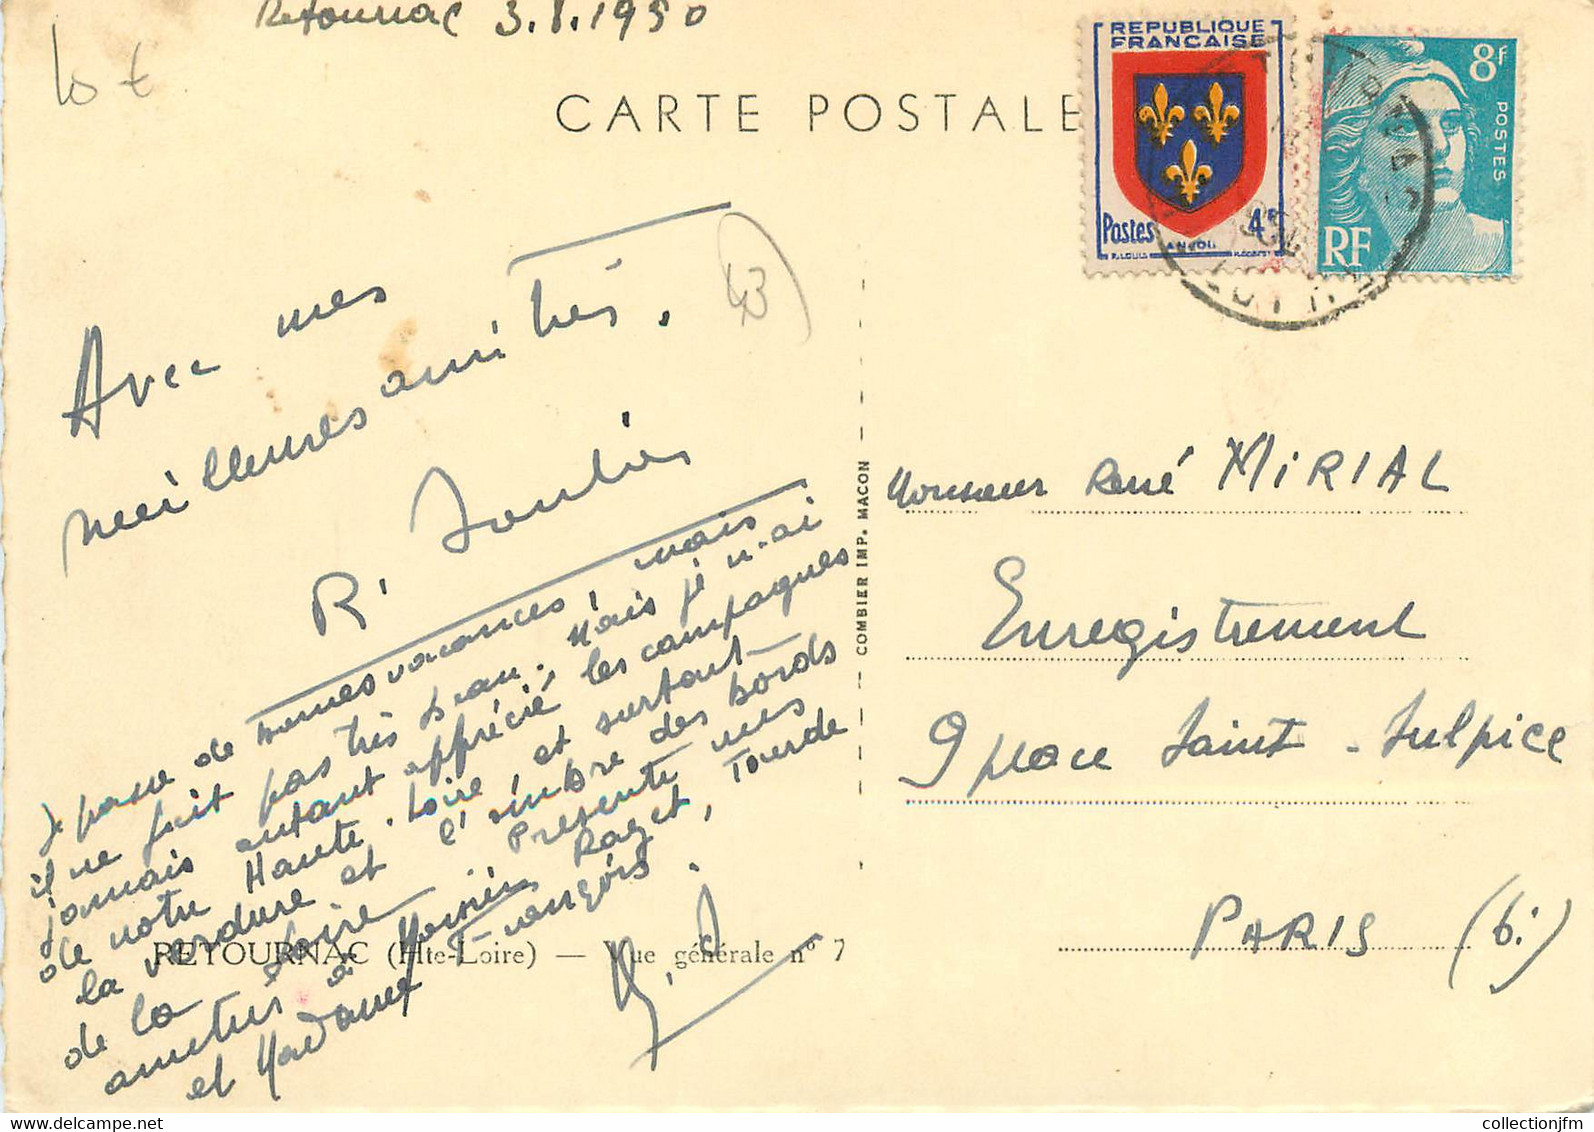 Retournac 3.8.1950
10 €
CARTE POSTALE
REPUBLIQUE
FRANÇAISE
Postes 4F
ANJOU
8F
POSTES
RF
43
Avec mes
meilleures amitiés.
R.
Je passe de bonnes vacances, mais
il ne fait pas très beau. Mais je n'ai
jamais autant apprécié les campagnes
de notre Haute-Loire, et surtout
la verdure et l'ombre des bords
de la Loire. Présente mes
amitiés à Messieurs Raget, Tourde
et Madame François.
RETOURNAC (Hte-Loire) — Vue générale n° 7
COMBIER IMP. MACON
Monsieur René MIRIAL
Enregistrement
9 place Saint-Sulpice
PARIS (6.)
collectionjfm